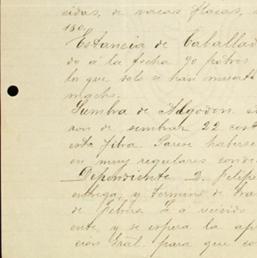 cidas, de vacas flacas,
180,
Estancia de Caballad
do á la fecha 90 potros
lo que solo se han muerto
macho.
Siembra de Algodon
ron de sembrar 22
esta fibra. Parese haberse
en muy regulares condi
Dependiente D. Felipe
entrega, y termino de
de Febrero
ente, y se espera la ap
cion para que